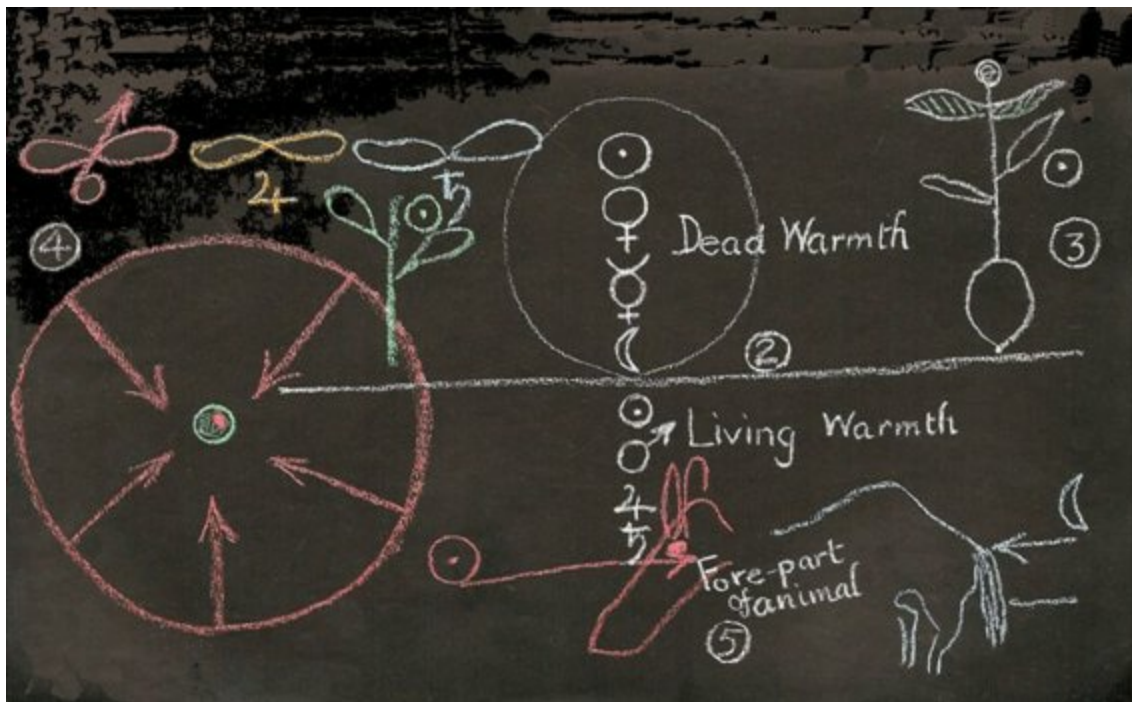 ♃
♄
④
☉
☉
♀
☿
☾
Dead Warmth
☉
③
②
☉
♂
Living Warmth
♃
♄
☾
☉
Fore-part
of animal
⑤